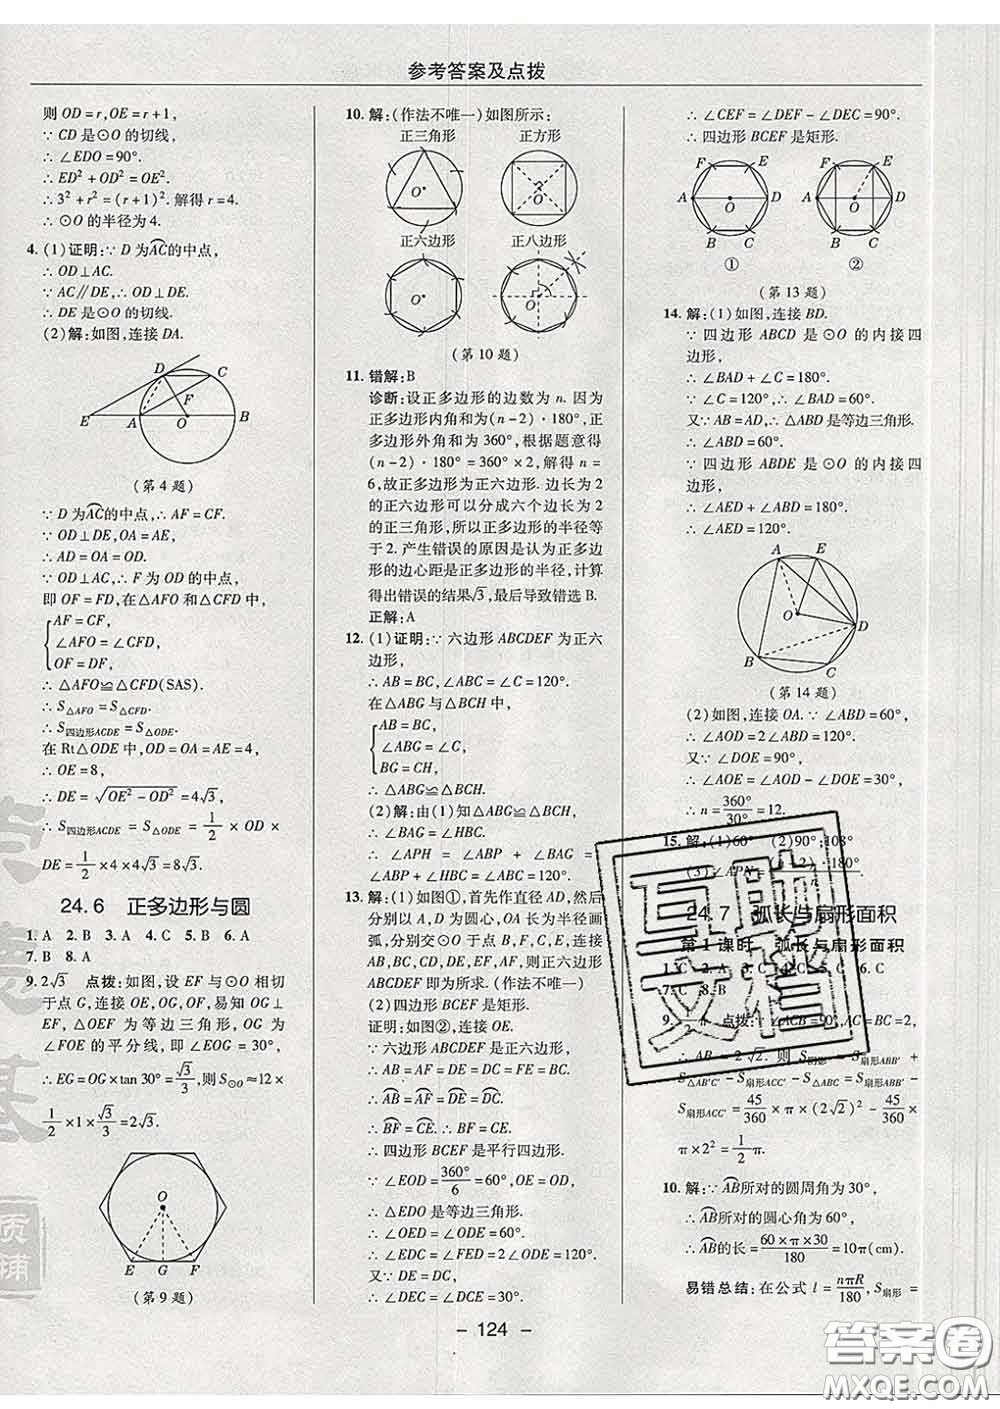 参考答案及点拨
则 OD=r,OE=r+1,
∵ CD 是⊙O 的切线,
∴ ∠EDO=90°.
∴ ED²+OD²=OE².
∴ 3²+r²=(r+1)². 解得 r=4.
∴ ⊙O 的半径为 4.
4. (1)证明:∵ D 为AC的中点,
∴ OD⊥AC.
∵ AC∥DE,∴ OD⊥DE.
∴ DE 是⊙O 的切线.
(2)解:如图,连接 DA.
D C F E A O B
(第 4 题)
∵ D 为AC的中点,∴ AF=CF.
∵ OD⊥DE,OA=AE,
∴ AD=OA=OD.
∵ OD⊥AC,∴ F 为 OD 的中点,
即 OF=FD,在△AFO 和△CFD 中,
AF=CF,
∠AFO=∠CFD,
OF=DF,
∴ △AFO≌△CFD(SAS).
∴ S△AFO=S△CFD.
∴ S四边形ACDE=S△ODE.
在 Rt△ODE 中,OD=OA=AE=4,
∴ OE=8,
∴ DE=√(OE²-OD²)=4√3,
∴ S四边形ACDE = S△ODE = 1/2 × OD ×
DE=1/2×4×4√3=8√3.
24.6 正多边形与圆
1. A 2. B 3. A 4. C 5. B 6. A
7. B 8. A
9. 2√3 点拨:如图,设 EF 与⊙O 相切
于点 G,连接 OE,OF,易知 OG⊥
EF,△OEF 为等边三角形,OG 为
∠FOE 的平分线,即∠EOG=30°,
∴ EG=OG×tan 30°=√3/3,则S⊙O≈12×
1/2×1×√3/3=2√3.
O
E G F
(第 9 题)
10. 解:(作法不唯一)如图所示:
正三角形 正方形
O O
正六边形 正八边形
O O
(第 10 题)
11. 错解:B
诊断:设正多边形的边数为 n. 因为
正多边形内角和为(n-2)·180°,正
多边形外角和为 360°,根据题意得
(n-2)·180°=360°×2,解得 n=
6,故正多边形为正六边形. 边长为 2
的正六边形可以分成六个边长为 2
的正三角形,所以正多边形的半径等
于 2. 产生错误的原因是认为正多边
形的边心距是正多边形的半径,计算
得出错误的结果√3,最后导致错选 B.
正解:A
12. (1)证明:∵ 六边形 ABCDEF 为正六
边形,
∴ AB=BC,∠ABC=∠C=120°.
在△ABG 与△BCH 中,
AB=BC,
∠ABG=∠C,
BG=CH,
∴ △ABG≌△BCH.
(2)解:由(1)知△ABG≌△BCH,
∴ ∠BAG=∠HBC.
∴ ∠APH = ∠ABP + ∠BAG =
∠ABP+∠HBC=∠ABC=120°.
13. 解:(1)如图①,首先作直径 AD,然后
分别以 A,D 为圆心,OA 长为半径画
弧,分别交⊙O 于点 B,F,C,E,连接
AB,BC,CD,DE,EF,AF,正六边形
ABCDEF 即为所求. (作法不唯一)
(2)四边形 BCEF 是矩形.
证明:如图②,连接 OE.
∵ 六边形 ABCDEF 是正六边形,
∴ AB=AF=DE=DC=FE=BC,
∴ AB=AF=DE=DC.
∴ BF=CE. ∴ BF=CE.
∴ 四边形 BCEF 是平行四边形.
∵ ∠EOD=360°/6=60°,OE=OD,
∴ △EDO 是等边三角形.
∴ ∠OED=∠ODE=60°.
∴ ∠EDC=∠FED=2∠ODE=120°.
又∵ DE=DC,
∴ ∠DEC=∠DCE=30°.
∴ ∠CEF=∠DEF-∠DEC=90°.
∴ 四边形 BCEF 是矩形.
F E A O D B C
①
F E A O D B C
②
(第 13 题)
14. 解:(1)如图,连接 BD.
∵ 四边形 ABCD 是⊙O 的内接四
边形,
∴ ∠BAD+∠C=180°.
∵ ∠C=120°,∴ ∠BAD=60°.
又∵ AB=AD,∴ △ABD 是等边三角形.
∴ ∠ABD=60°.
∵ 四边形 ABDE 是⊙O 的内接四
边形,
∴ ∠AED+∠ABD=180°.
∴ ∠AED=120°.
A E O D B C
(第 14 题)
(2)如图,连接 OA. ∵ ∠ABD=60°,
∴ ∠AOD=2∠ABD=120°.
又∵ ∠DOE=90°,
∴ ∠AOE=∠AOD-∠DOE=30°.
∴ n=360°/30°=12.
15. 解:(1)60° (2)90°;108°
(3)∠APN=·180°
24.7 弧长与扇形面积
第 1 课时 弧长与扇形面积
1. C 2. A 3. 6. C
7. C 8. B
9. π 点拨:∵ ∠ACB=90°,AC=BC=2,
∴ AB=2√2. 则 S阴影=S扇形ABB′+
S△AB′C′-S扇形ACC′-S△ABC=S扇形ABB′-
S扇形ACC′=45/360×π×(2√2)²-45/360
×π×2²=1/2π.
10. 解:∵ AB所对的圆周角为 30°,
∴ AB所对的圆心角为 60°,
∴ AB的长=60×π×30/180=10π(cm).
易错总结:在公式 l=nπR/180,S扇形=
互助文档
- 124 -
答案圈
MXQE.COM